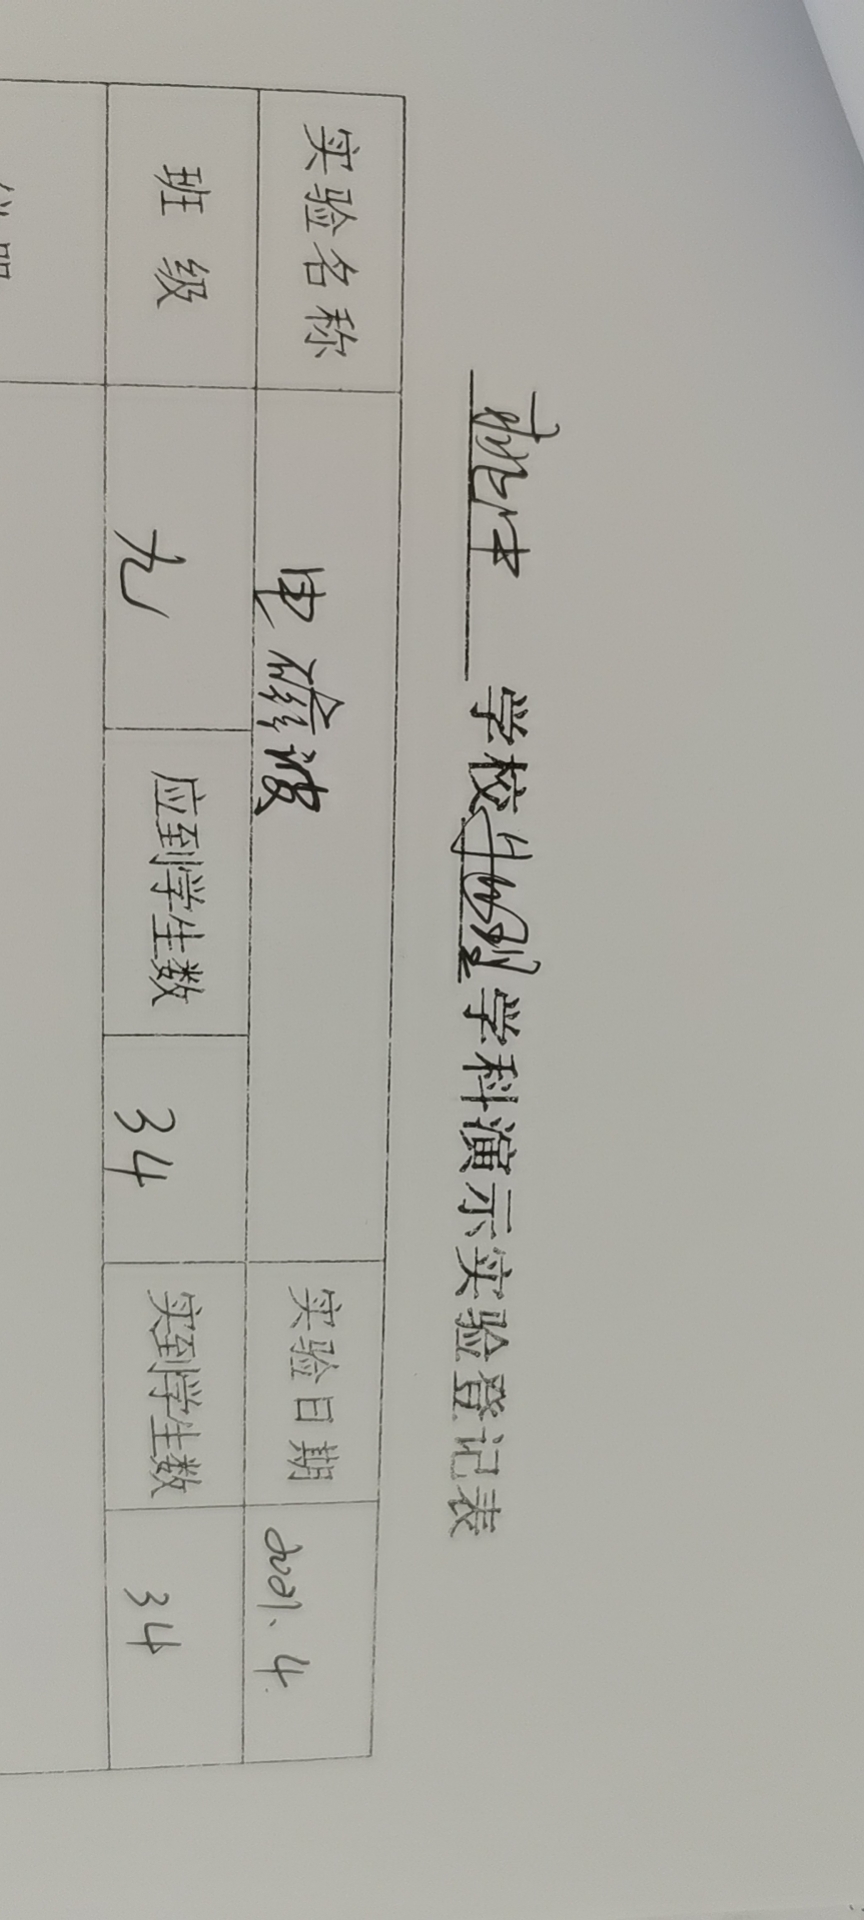 学校物理学科演示实验登记表
实验名称 电磁波 实验日期 2021.4
班级 九 应到学生数 34 实到学生数 34